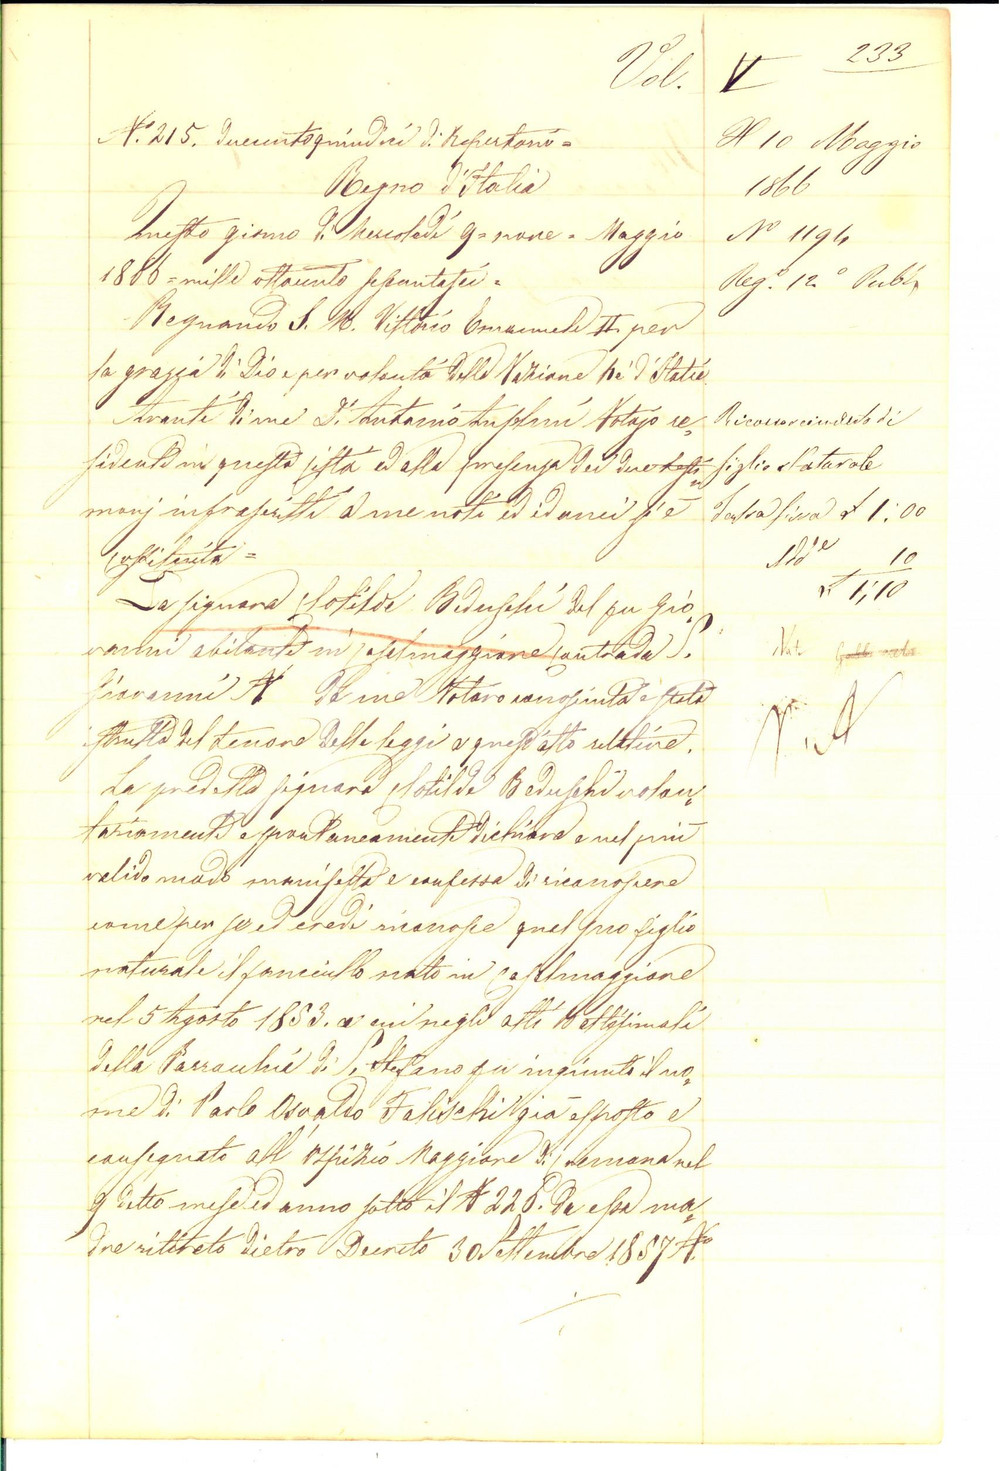 Vol. V 233
N.° 215. duecentoquindici di Repertorio =
Regno d'Italia
Questo giorno di Mercoledì 9 = nove = Maggio
1866 = mille ottocento sessantasei =
Regnando S. M. Vittorio Emanuele II per
la grazia di Dio e per volontà della Nazione Re d'Italia
Avanti di me D.r Antonio Notajo re=
sidente in questa città ed alla presenza dei due testi=
monj infrascritti a me noti ed idonei si è
costituita =
La signora Clotilde Beduschi del fu Gio=
vanni abitante in Casalmaggiore Contrada S.
Giovanni N da me Notaro conosciuta e stata
istrutta del tenore delle leggi a quest'atto relative.
La predetta signora Clotilde Beduschi volon=
tariamente e spontaneamente dichiara e nel più
valido modo manifesta e confessa di riconoscere
come per se ed eredi riconosce qual suo figlio
naturale il fanciullo nato in Casalmaggiore
nel 5 Agosto 1853. a cui negli atti Battesimali
della Parrocchia di S. Stefano fu ingiunto il no=
me di Paolo Osvaldo Falischi già esposto e
consegnato all'Ospizio Maggiore di Cremona nel
9 detto mese ed anno sotto il N 226. da essa ma=
dre ritirato dietro Decreto 30 Settembre 1857 N.°
Il 10 Maggio
1866
N° 1194
Reg.° 12° Pubb.
Riconoscimento di
figlio naturale
Tassa fissa £ 1:00
Add.le 10
£ 1,10